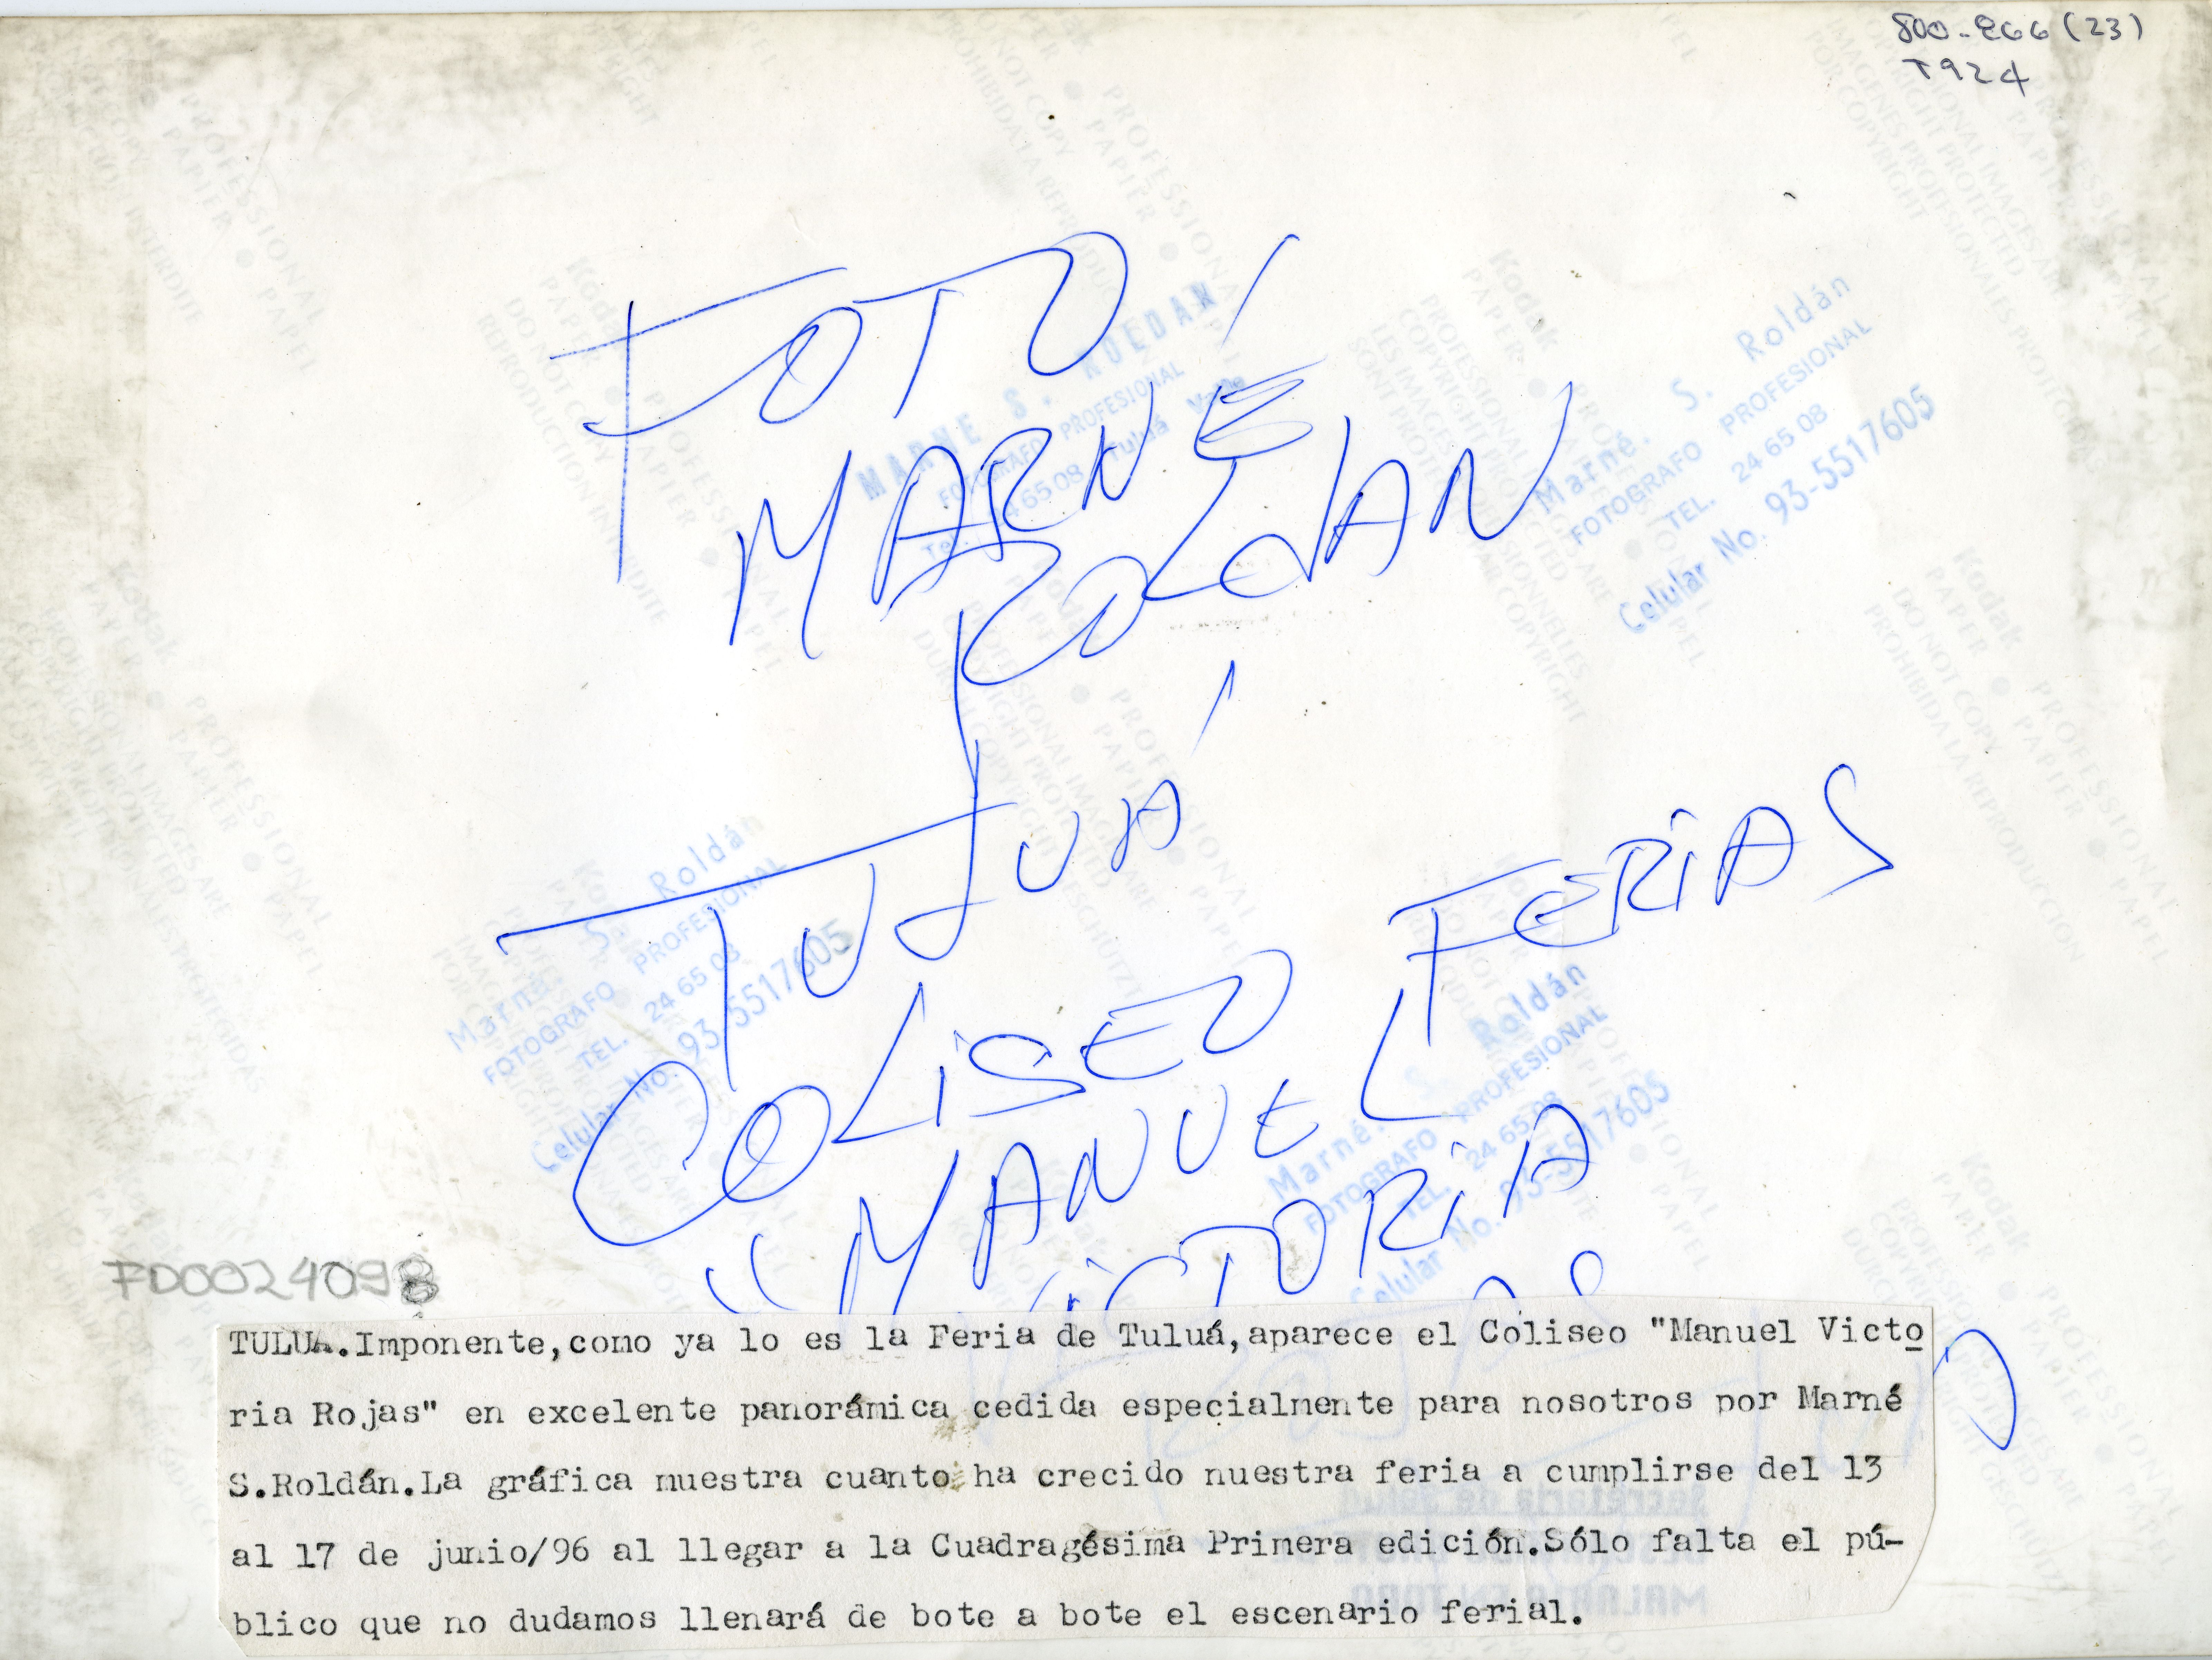 800-266 (23)
T924
FOTO
MARNÉ
ROLDAN
TULUÁ
COLISEO FERIAS
"MANUEL
VICTORIA
MARNE S. ROLDAN
FOTOGRAFO PROFESIONAL
Tel. 24 65 08 Tuluá Valle
Marné. S. Roldán
FOTOGRAFO PROFESIONAL
TEL. 24 65 08
Celular No. 93-5517605
Marné. S. Roldán
FOTOGRAFO PROFESIONAL
TEL. 24 65 08
Celular No. 93-5517605
Marné. S. Roldán
FOTOGRAFO PROFESIONAL
TEL. 24 65 08
Celular No. 93-5517605
FD0024098
TULUA.Imponente,como ya lo es la Feria de Tuluá,aparece el Coliseo "Manuel Victo
ria Rojas" en excelente panorámica cedida especialmente para nosotros por Marné
S.Roldán.La gráfica muestra cuanto ha crecido nuestra feria a cumplirse del 13
al 17 de junio/96 al llegar a la Cuadragésima Primera edición.Sólo falta el pú-
blico que no dudamos llenará de bote a bote el escenario ferial.